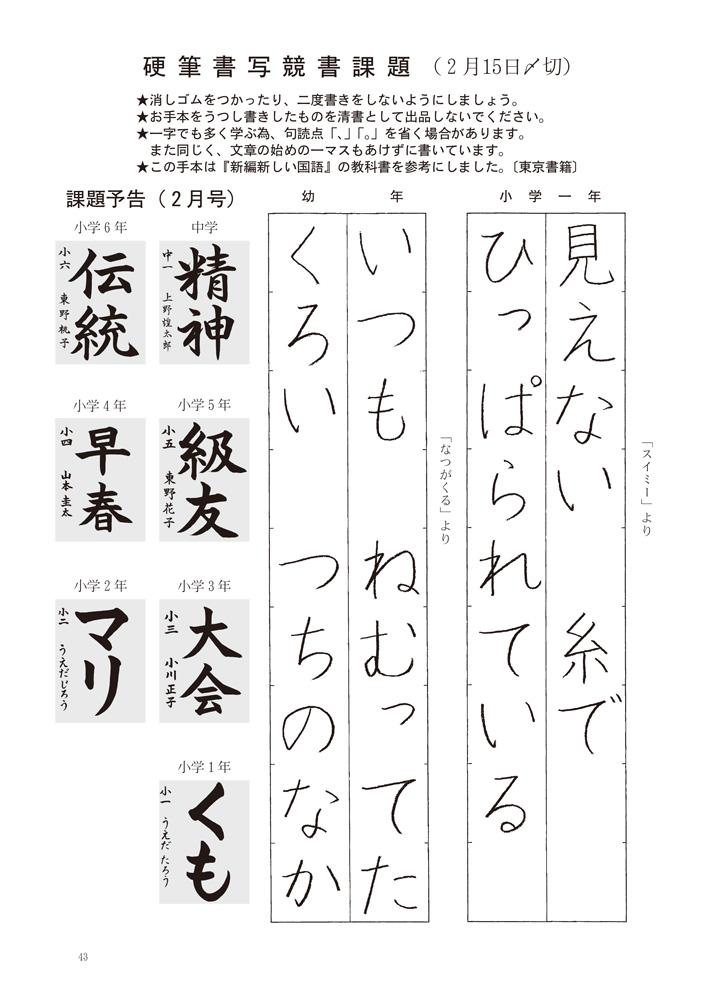 硬筆書写競書課題（２月15日〆切）
★消しゴムをつかったり、二度書きをしないようにしましょう。
★お手本をうつし書きしたものを清書として出品しないでください。
★一字でも多く学ぶ為、句読点「、」「。」を省く場合があります。
また同じく、文章の始めの一マスもあけずに書いています。
★この手本は『新編新しい国語』の教科書を参考にしました。〔東京書籍〕
小学一年
見えない　糸で
ひっぱられている
「スイミー」より
幼年
いつも　ねむってた
くろい　つちのなか
「なつがくる」より
課題予告（２月号）
中学
精神
中一　上野煌太郎
小学６年
伝統
小六　東野桃子
小学５年
級友
小五　東野花子
小学４年
早春
小四　山本圭太
小学３年
大会
小三　小川正子
小学２年
マリ
小二　うえだじろう
小学１年
くも
小一　うえだたろう
43